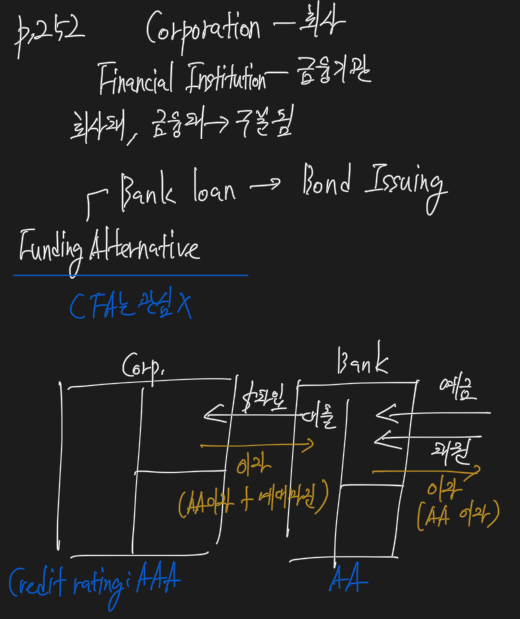 p.252 Corporation — 회사
Financial Institution — 금융기관
회사채, 금융채 → 구분됨
Bank loan → Bond Issuing
Funding Alternative
CFA는 관심X
Corp.
Bank
예금
대출
채권
이자
(AA이자 + 예대마진)
이자
(AA 이자)
Credit rating: AAA
AA